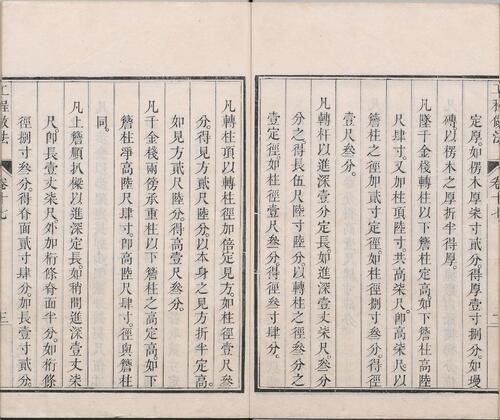 工程做法
二
定厚如楞木厚柒寸貳分得厚壹寸捌分如墁
磚以楞木之厚折半得厚
凡墜千金棧轉柱以外加下簷柱高定高如下簷柱高陸
尺肆寸又加柱頂陸寸共高柒尺即高柒尺以
簷柱之徑加貳寸定徑如柱徑捌寸叁分得徑
壹尺叁分
凡轉杆以進深壹分定長如進深壹丈柒尺叁分
分之得長伍尺陸寸陸分以轉柱之徑叁分之
壹定徑如柱徑壹尺叁分得徑叁寸肆分
凡轉柱頂以轉柱徑加倍定見方如柱徑壹尺叁
分得見方貳尺陸分以本身之見方折半定高
如見方貳尺陸分得高壹尺叁分
凡千金棧兩傍承重柱以下簷柱之高定高如下
簷柱淨高陸尺肆寸即高陸尺肆寸徑與簷柱
同
凡上簷順扒樑以進深定長如稍間進深壹丈柒
尺即長壹丈柒尺外加桁條脊面半分如桁條
徑捌寸叁分得脊面貳寸肆分如長壹寸貳分
工程做法
卷十七
三